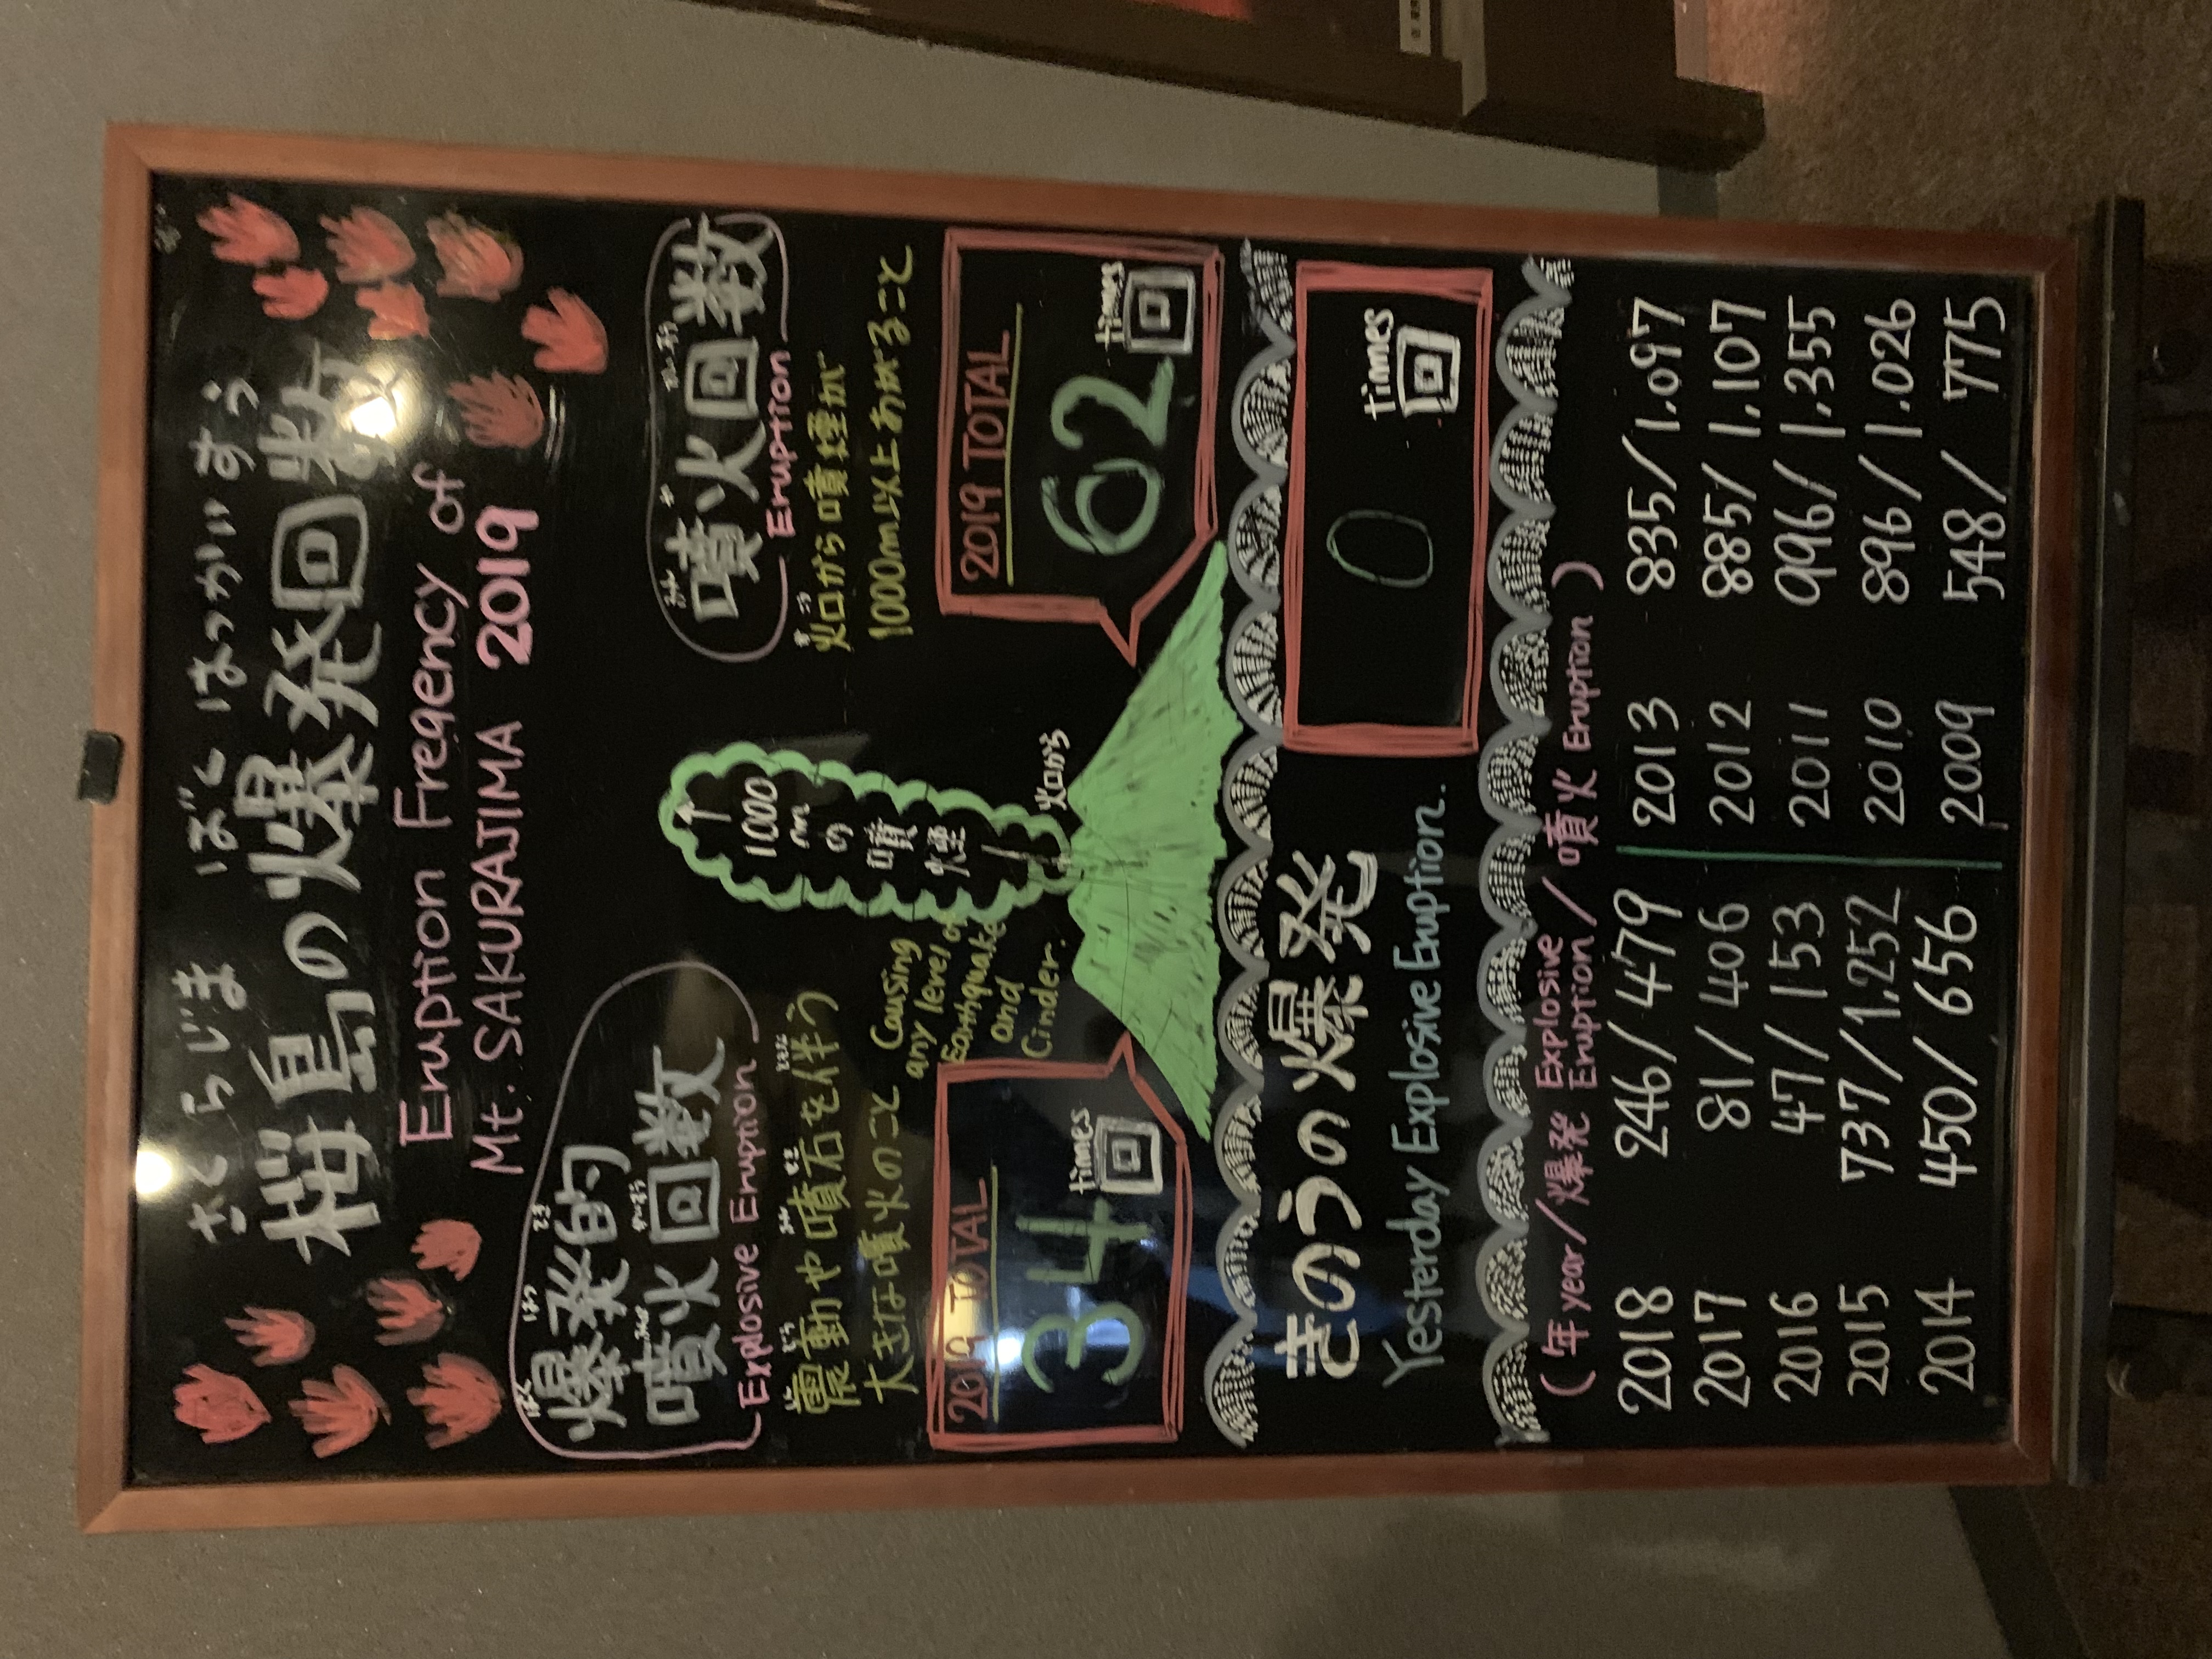 さくらじま ばくはつかいすう
桜島の爆発回数
Eruption Freqency of
Mt. SAKURAJIMA 2019
ばく はつ てき
爆発的
噴火回数
Explosive Eruption
震動や噴石を伴う
大きな噴火のこと
Causing
any level of
Earthquake
and
Cinder.
2019 TOTAL
34
times
回
1000
m
の
噴
煙
火口から
噴火回数
Eruption
火口から噴煙が
1000m以上あがること
2019 TOTAL
62
times
回
きのうの爆発
Yesterday Explosive Eruption.
0
times
回
(年year/爆発 Explosive Eruption/噴火 Eruption)
2018 246/479
2017 81/406
2016 47/153
2015 737/1,252
2014 450/656
2013 835/1.097
2012 885/1,107
2011 996/1,355
2010 896/1.026
2009 548/775